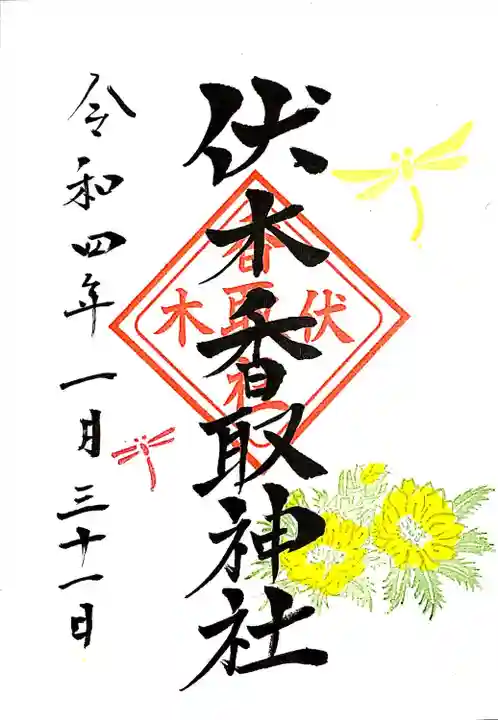 伏木香取神社
令和四年一月三十一日
伏木
香取神社